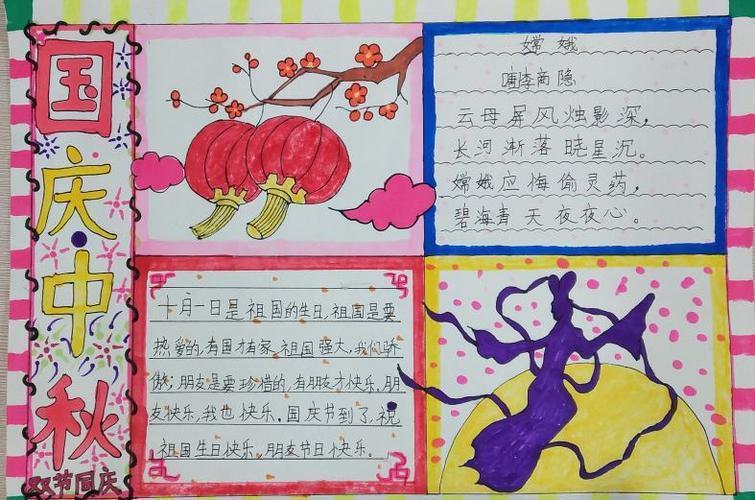 国庆·中秋
双节同庆
嫦娥
唐李商隐
云母屏风烛影深,
长河渐落晓星沉。
嫦娥应悔偷灵药,
碧海青天夜夜心。
十月一日是祖国的生日,祖国是要
热爱的,有国才有家。祖国强大,我们骄
傲;朋友是要珍惜的,有朋友才快乐,朋
友快乐,我也快乐。国庆节到了,祝
祖国生日快乐。朋友节日快乐。